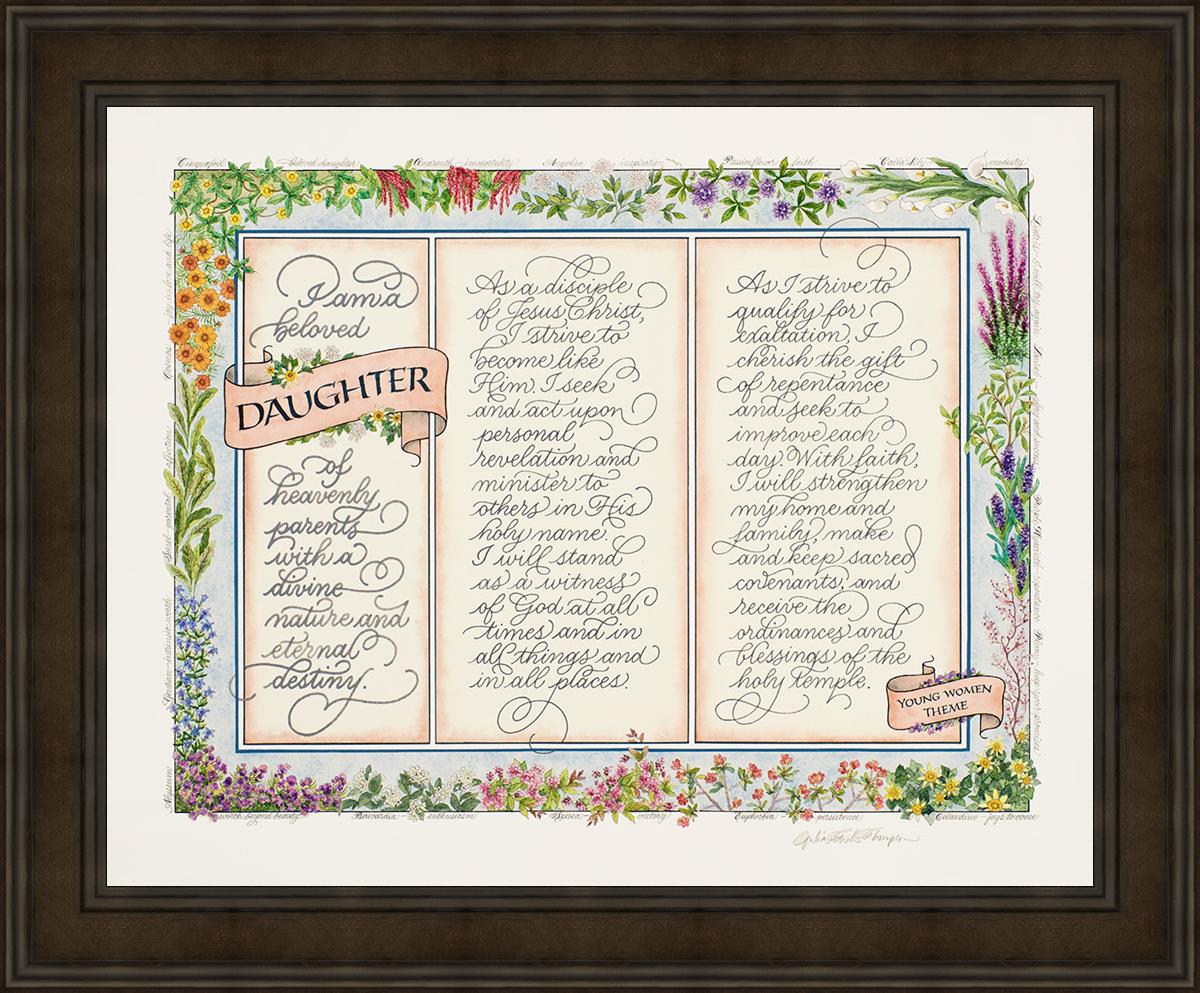 Cinquefoil - beloved daughter
Amaranth - immortality
Angelica - inspiration
Passionflower - faith
Calla Lily - modesty
I am a
beloved
DAUGHTER
of
heavenly
parents
with a
divine
nature and
eternal
destiny.
As a disciple
of Jesus Christ,
I strive to
become like
Him. I seek
and act upon
personal
revelation and
minister to
others in His
holy name.
I will stand
as a witness
of God at all
times and in
all things and
in all places.
As I strive to
qualify for
exaltation, I
cherish the gift
of repentance
and seek to
improve each
day. With faith,
I will strengthen
my home and
family, make
and keep sacred
covenants, and
receive the
ordinances and
blessings of the
holy temple.
YOUNG WOMEN
THEME
worth beyond beauty
Bouvardia - enthusiasm
Spirea - victory
Euphorbia - persistence
Celandine - joys to come